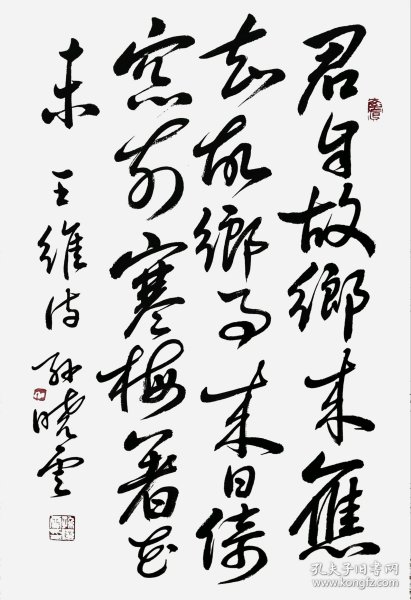 君自故鄉來應
知故鄉事來日綺
窗前寒梅著花
未 王維詩 孫曉雲
孔夫子旧书网
www.kongfz.com